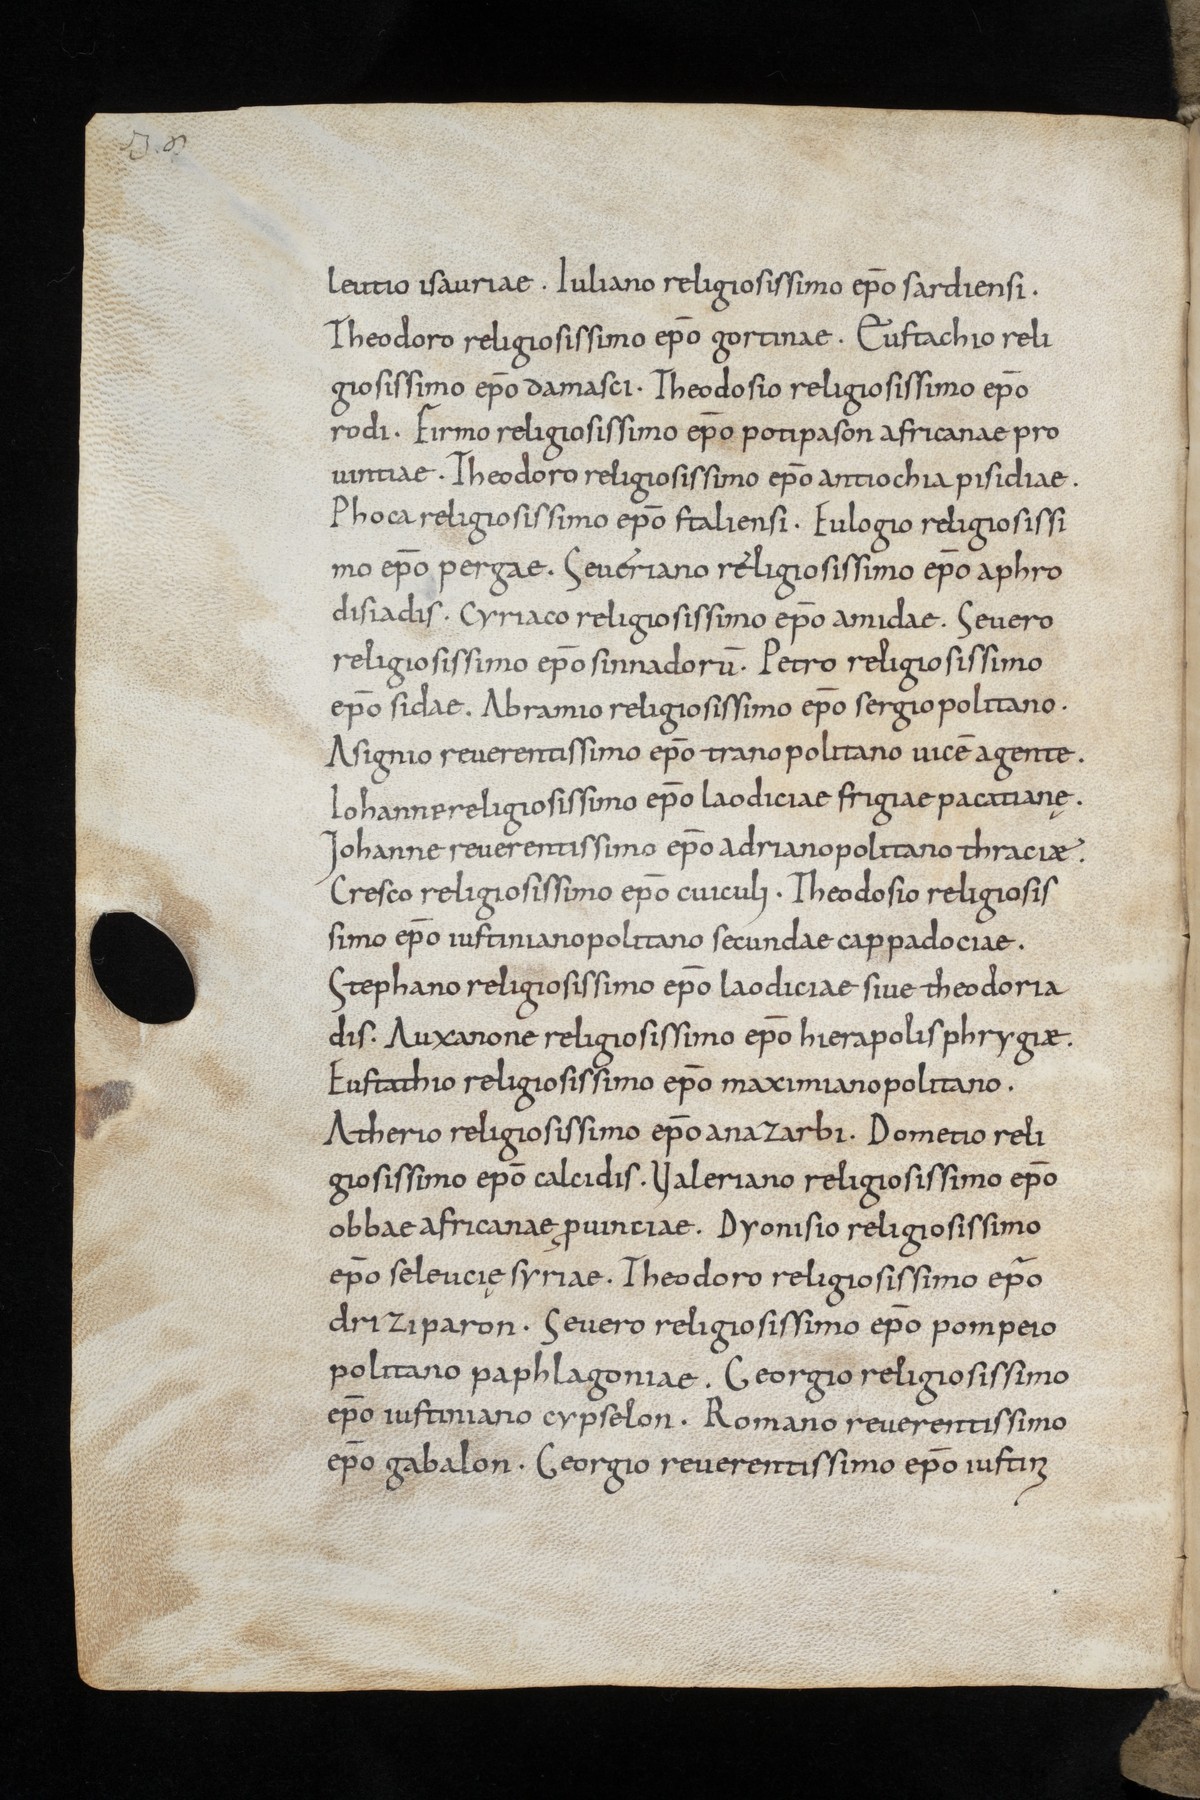 leutio isauriae. Iuliano religiosissimo ep̄o sardiensi.
Theodoro religiosissimo ep̄o gortinae. Eustachio reli
giosissimo ep̄o damasci. Theodosio religiosissimo ep̄o
rodi. Firmo religiosissimo ep̄o potipason africanae pro
uintiae. Theodoro religiosissimo ep̄o antiochia pisidiae.
Phoca religiosissimo ep̄o staliensi. Eulogio religiosissi
mo ep̄o pergae. Seueriano religiosissimo ep̄o aphro
disiadis. Cyriaco religiosissimo ep̄o amidae. Seuero
religiosissimo ep̄o sinnadorū. Petro religiosissimo
ep̄o sidae. Abramio religiosissimo ep̄o sergiopolitano.
Asignio reuerentissimo ep̄o tranopolitano uicē agente.
Iohanne religiosissimo ep̄o laodiciae frigiae pacatianę.
Iohanne reuerentissimo ep̄o adrianopolitano thraciæ.
Cresco religiosissimo ep̄o cuiculi. Theodosio religiosis
simo ep̄o iustinianopolitano secundae cappadociae.
Stephano religiosissimo ep̄o laodiciae siue theodoria
dis. Auxanone religiosissimo ep̄o hierapolis phrygiæ.
Eustathio religiosissimo ep̄o maximianopolitano.
Atherio religiosissimo ep̄o anazarbi. Dometio reli
giosissimo ep̄o calcidis. Valeriano religiosissimo ep̄o
obbae africanae ꝓuinciae. Dyonisio religiosissimo
ep̄o seleucię syriae. Theodoro religiosissimo ep̄o
driziparon. Seuero religiosissimo ep̄o pompeio
politano paphlagoniae. Georgio religiosissimo
ep̄o iustiniano cypselon. Romano reuerentissimo
ep̄o gabalon. Georgio reuerentissimo ep̄o iustin